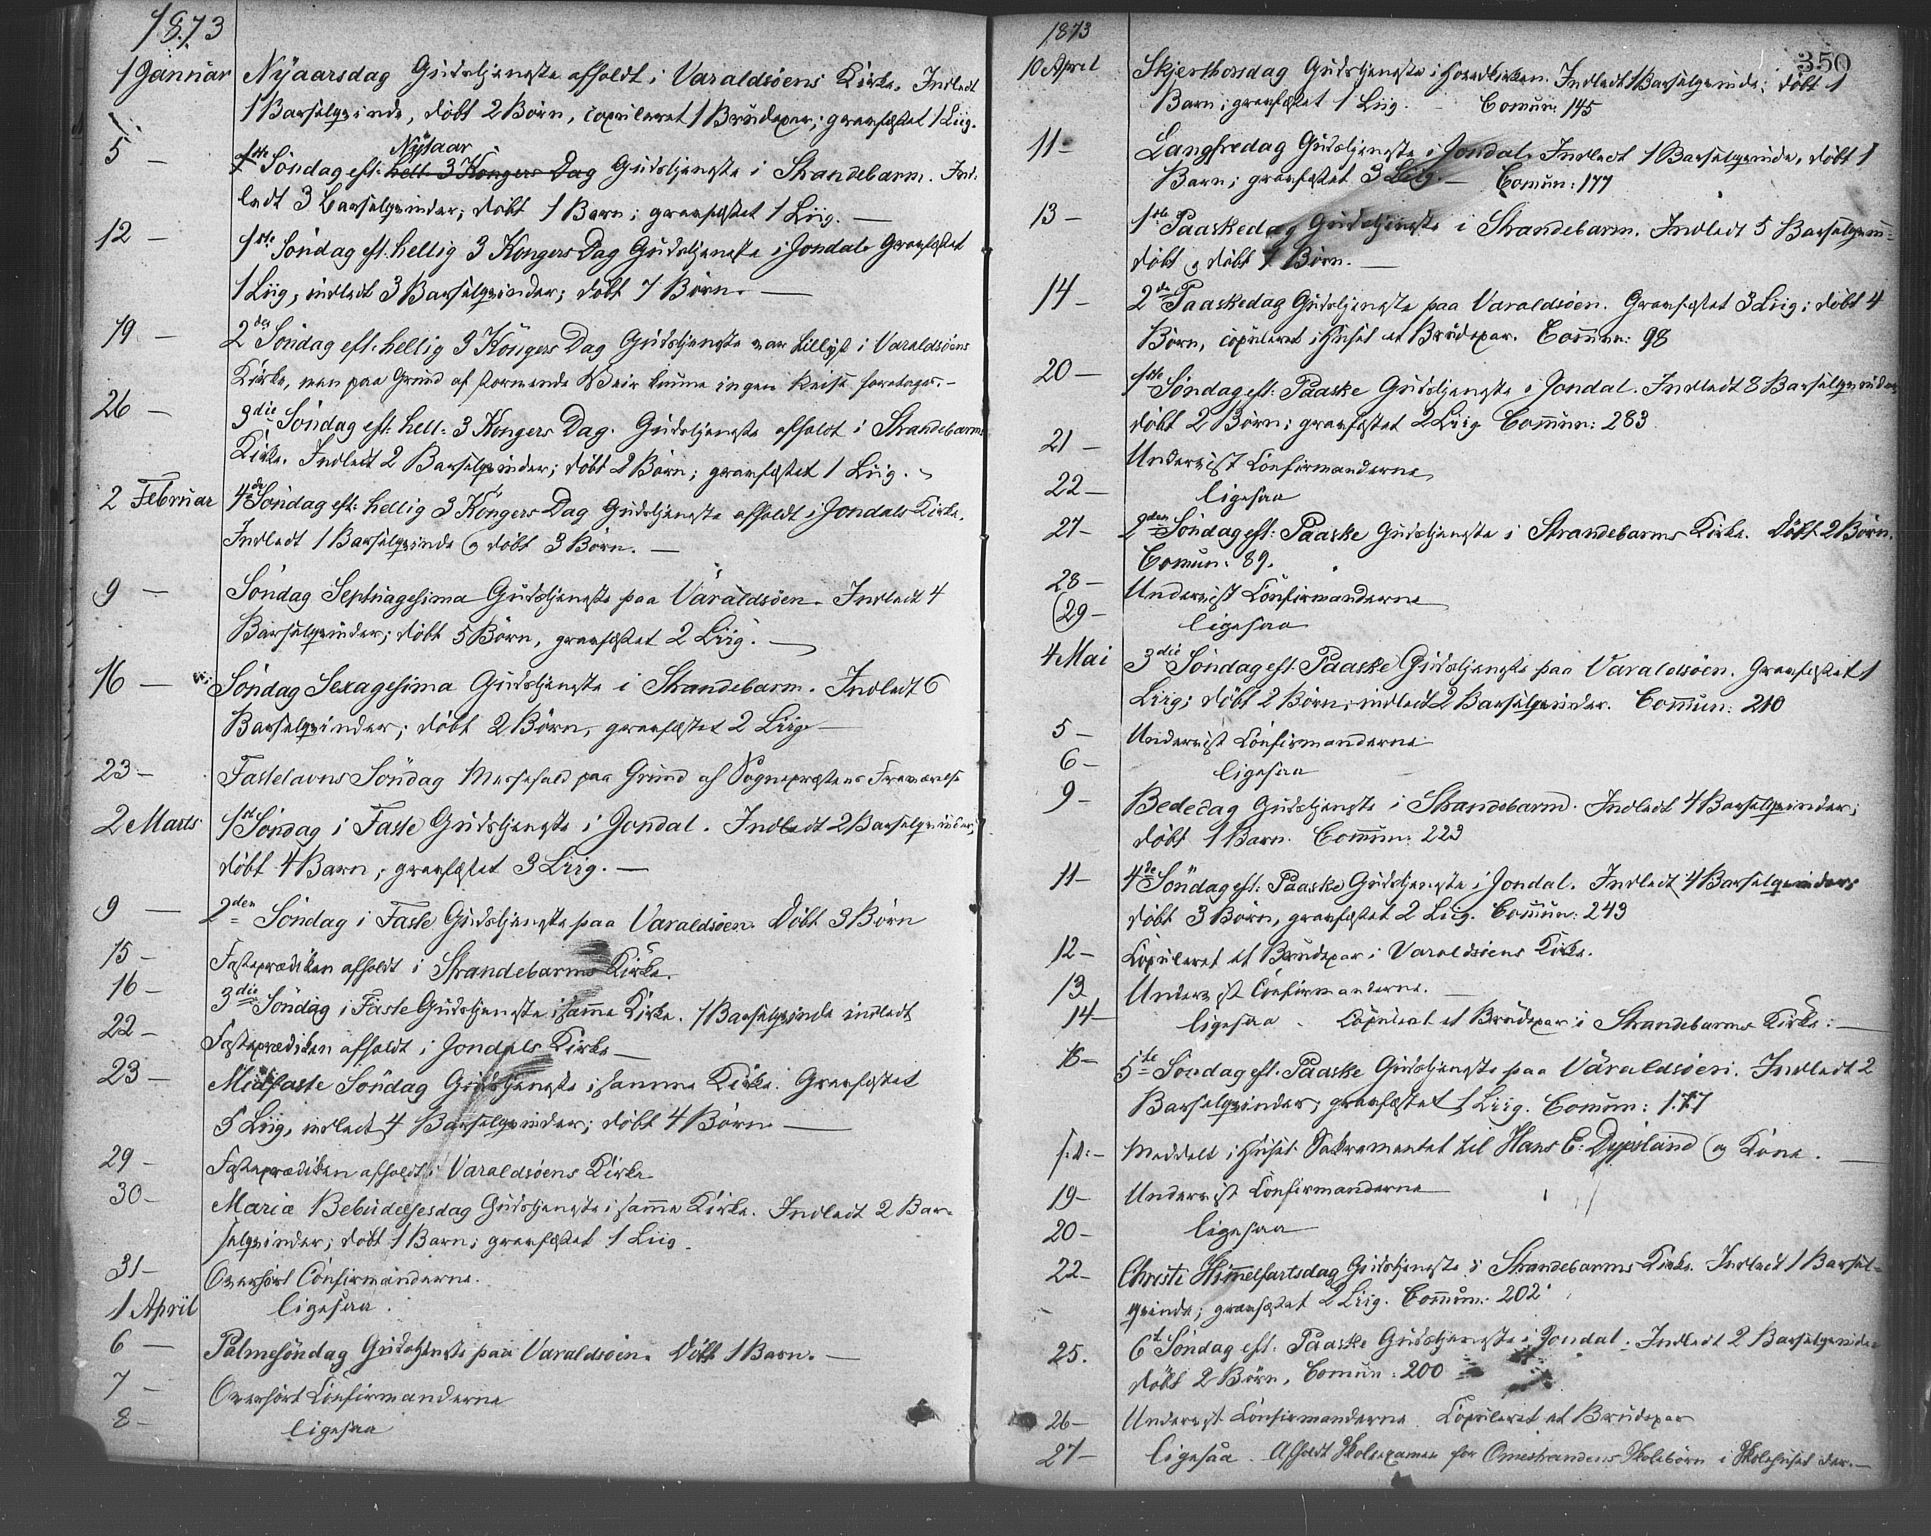 1873
1 Januar Nyaarsdag Gudstjeneste afholdt i Varaldsöens Kirke. Indledt
1 Barselqvinde, døbt 2 Børn, copuleret 1 Brudepar; græsfæstet 1 Liig.
5 — 1ste Søndag eft. Nytaar hell. 3 Kongers Dag Gudstjeneste i Strandebarm. Ind-
ledt 3 Barselqvinder; døbt 1 Barn; græsfæstet 1 Liig. —
12 — 1ste Søndag eft. hellig 3 Kongers Dag Gudstjeneste i Jondal. Græsfæstet
1 Liig, indledt 3 Barselqvinder; døbt 7 Børn. —
19 — 2den Søndag eft. hellig 3 Kongers Dag Gudstjeneste var tillyst i Varaldsöens
Kirke, men paa Grund af stormende Veir kunne ingen Reise foretages. —
26 — 3die Søndag eft. hell. 3 Kongers Dag. Gudstjeneste afholdt i Strandebarms
Kirke. Indledt 2 Barselqvinder; døbt 2 Børn; græsfæstet 1 Liig.
2 Februar 4de Søndag eft. hellig 3 Kongers Dag Gudstjeneste afholdt i Jondals Kirke.
Indledt 1 Barselqvinde og døbt 3 Børn. —
9 — Søndag Septuagesima Gudstjeneste paa Varaldsöen. Indledt 4
Barselqvinder; døbt 5 Børn, græsfæstet 2 Liig. —
16 — Søndag Sexagesima Gudstjeneste i Strandebarm. Indledt 6
Barselqvinder; døbt 2 Børn, græsfæstet 2 Liig —
23 — Fastelavns Søndag Messefald paa Grund af Sognepræstens Fraværelse
2 Marts 1ste Søndag i Faste Gudstjeneste i Jondal. Indledt 2 Barselqvinder;
døbt 4 Barn, græsfæstet 3 Liig. —
9 — 2den Søndag i Faste Gudstjeneste paa Varaldsöen. Døbt 3 Børn
15 — Fasteprædiken afholdt i Strandebarms Kirke.
16 — 3die Søndag i Faste Gudstjeneste i samme Kirke. 1 Barselqvinde indledt
22 — Fasteprædiken afholdt i Jondals Kirke —
23 — Midfaste Søndag Gudstjeneste i samme Kirke. Græsfæstet
5 Liig, indledt 4 Barselqvinder; døbt 4 Børn —
29 — Fasteprædiken afholdt i Varaldsöens Kirke
30 — Mariæ Bebudelsesdag Gudstjeneste i samme Kirke. Indledt 2 Bar-
selqvinder; døbt 1 Barn; græsfæstet 1 Liig.
31 — Overhørt Confirmanderne.
1 April ligesaa.
6 — Palmesöndag Gudstjeneste paa Varaldsöen. Døbt 1 Barn. —
7 — Overhørt Confirmanderne
8 — ligesaa
1873
350
10 April Skjærthorsdag Gudstjeneste i Hovedkirken. Indledt 1 Barselqvinde; døbt 1
Barn; græsfæstet 1 Liig. — Comun: 145
11 — Langfredag Gudstjeneste i Jondal. Indledt 1 Barselqvinde, døbt 1
Barn; græsfæstet 3 Liig. — Comun: 177
13 — 1ste Paaskedag Gudstjeneste i Strandebarm. Indledt 5 Barselqvin-
døbt og døbt 1 Børn. —
14 — 2den Paaskedag Gudstjeneste paa Varaldsöen. Græsfæstet 3 Liig; døbt 4
Børn, copuleret i Huset et Brudepar. Commun: 98
20 — 1ste Søndag eft: Paaske Gudstjeneste i Jondal. Indledt 8 Barselqvinder
døbt 2 Børn; græsfæstet 2 Liig Commun: 283
21 — Undervist Confirmanderne
22 — ligesaa
27 — 2den Søndag eft: Paaske Gudstjeneste i Strandebarms Kirke. Døbt 2 Børn.
Comun: 89.
28 — Undervist Confirmanderne
29 — ligesaa
4 Mai 3die Søndag eft. Paaske Gudstjeneste paa Varaldsöen. Græsfæstet 1
Liig; døbt 2 Børn; indledt 2 Barselqvinder. Commun: 210
5 — Undervist Confirmanderne
6 — ligesaa
9 — Bededag Gudstjeneste i Strandebarm. Indledt 4 Barselqvinder;
døbt 1 Barn. Commun: 223
11 — 4de Søndag eft: Paaske Gudstjeneste i Jondal. Indledt 4 Barselqvinder;
døbt 3 Børn, græsfæstet 2 Liig. Commun: 243
12 — Copuleret et Brudepar i Varaldsöens Kirke.
13 Undervist Confirmanderne. —
14 — ligesaa. Copuleret et Brudepar i Strandebarms Kirke: —
18 — 5te Søndag eft. Paaske Gudstjeneste paa Varaldsöen. Indledt 2
Barselqvinder; græsfæstet 1 Liig. Comun: 177
s. d. — Meddelt i Huset Sakramentet til Hans E: Dypsland og Kone. —
19 — Undervist Confirmanderne
20 — ligesaa
22 — Christi Himmelfartsdag Gudstjeneste i Strandebarms Kirke. Indledt 1 Barsel-
qvinde; græsfæstet 2 Liig. Commun: 202
25. 6te Søndag eft: Paaske Gudstjeneste i Jondal. Indledt 2 Barselqvinder
døbt 2 Børn, Comun: 200
26 — Undervist Confirmanderne. Copuleret et Brudepar
27 — ligesaa. Afholdt Skoleexamen for Omestrandens Skolebörn i Skolehuset der. —